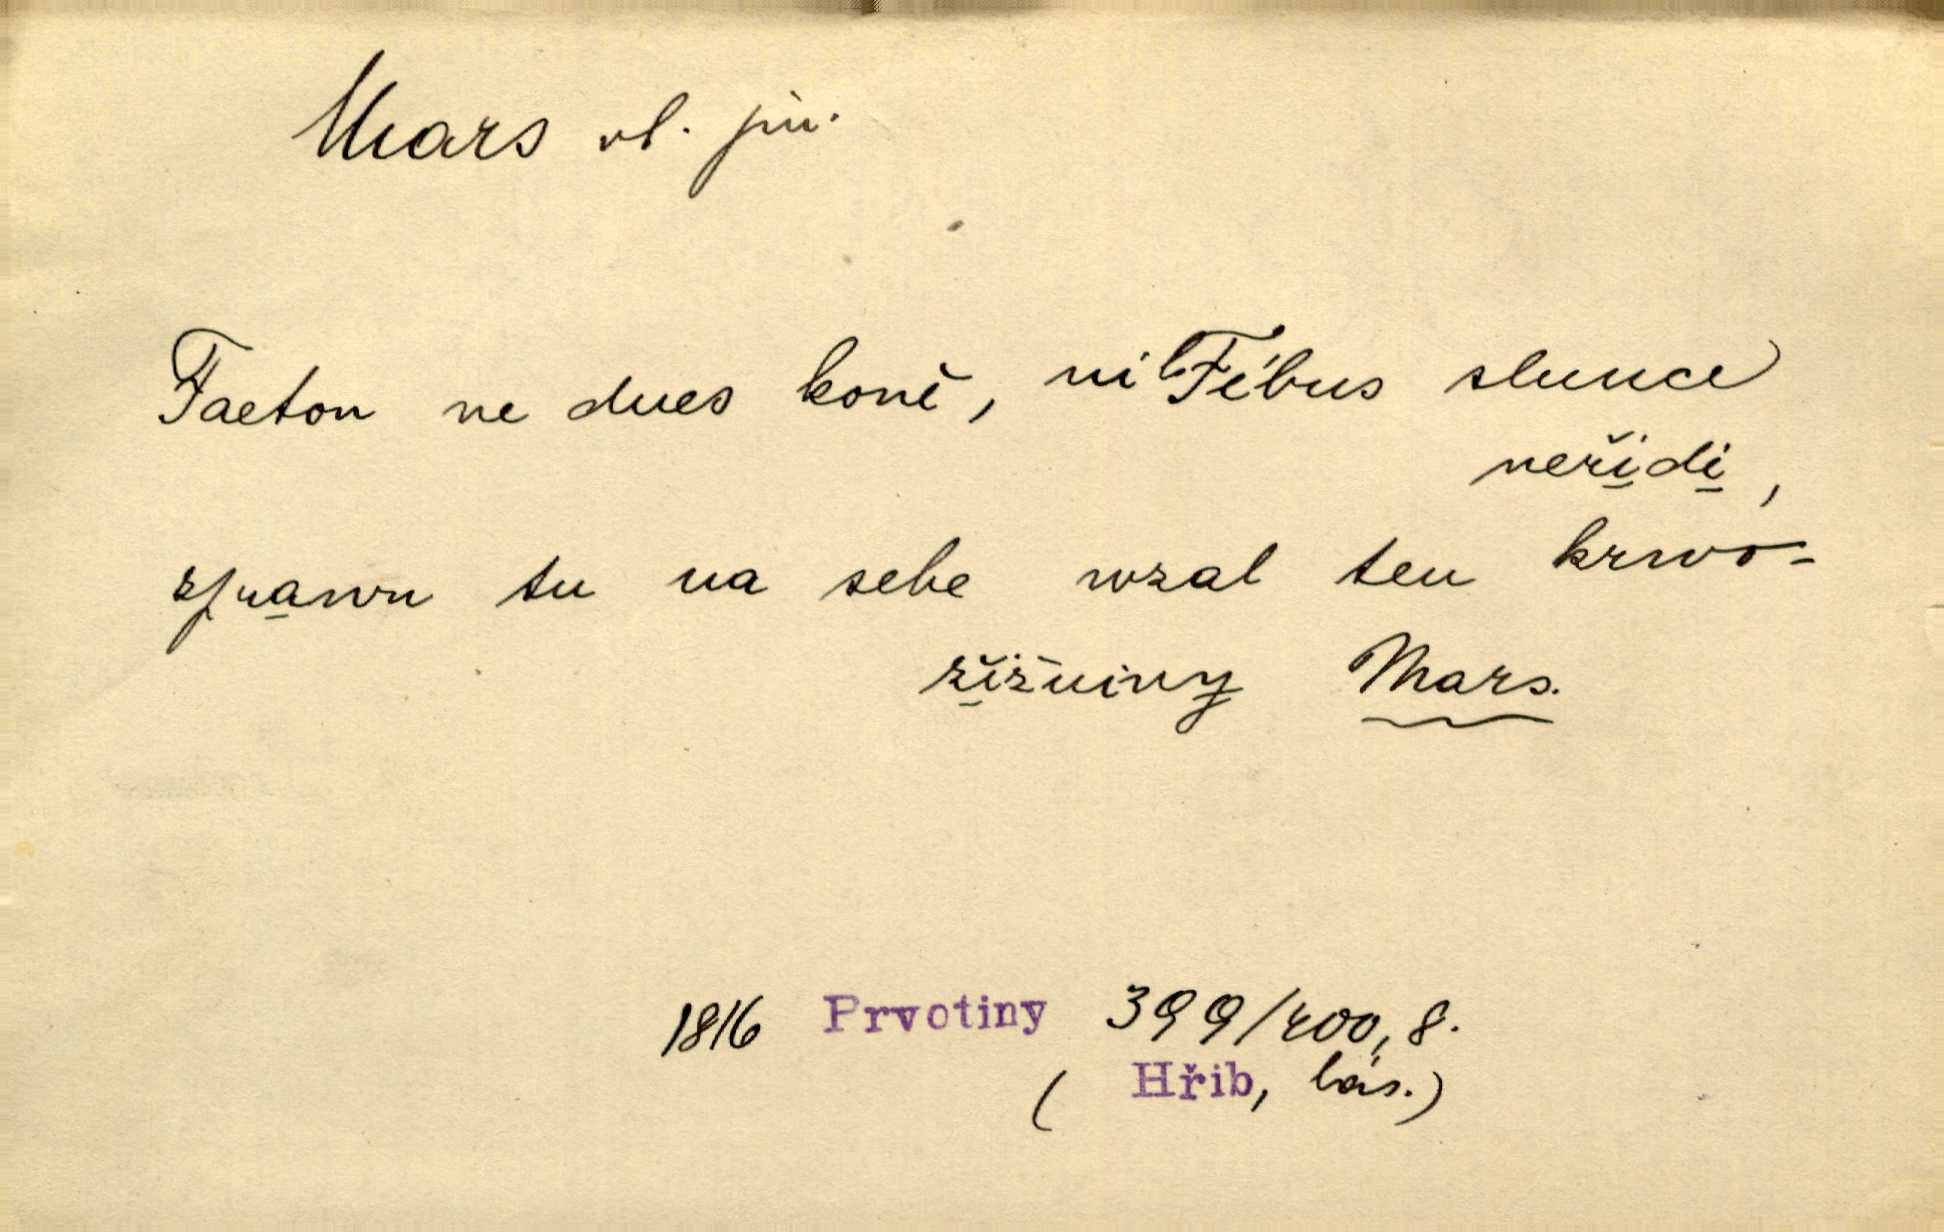 Mars vl. jm.
Faeton ne dnes koně, nil Fébus slunce
neřidi,
zprawu tu na sebe wzal ten krwo-
žižniwy Mars.
1816 Prvotiny 399/400, 8.
( Hřib, bás.)